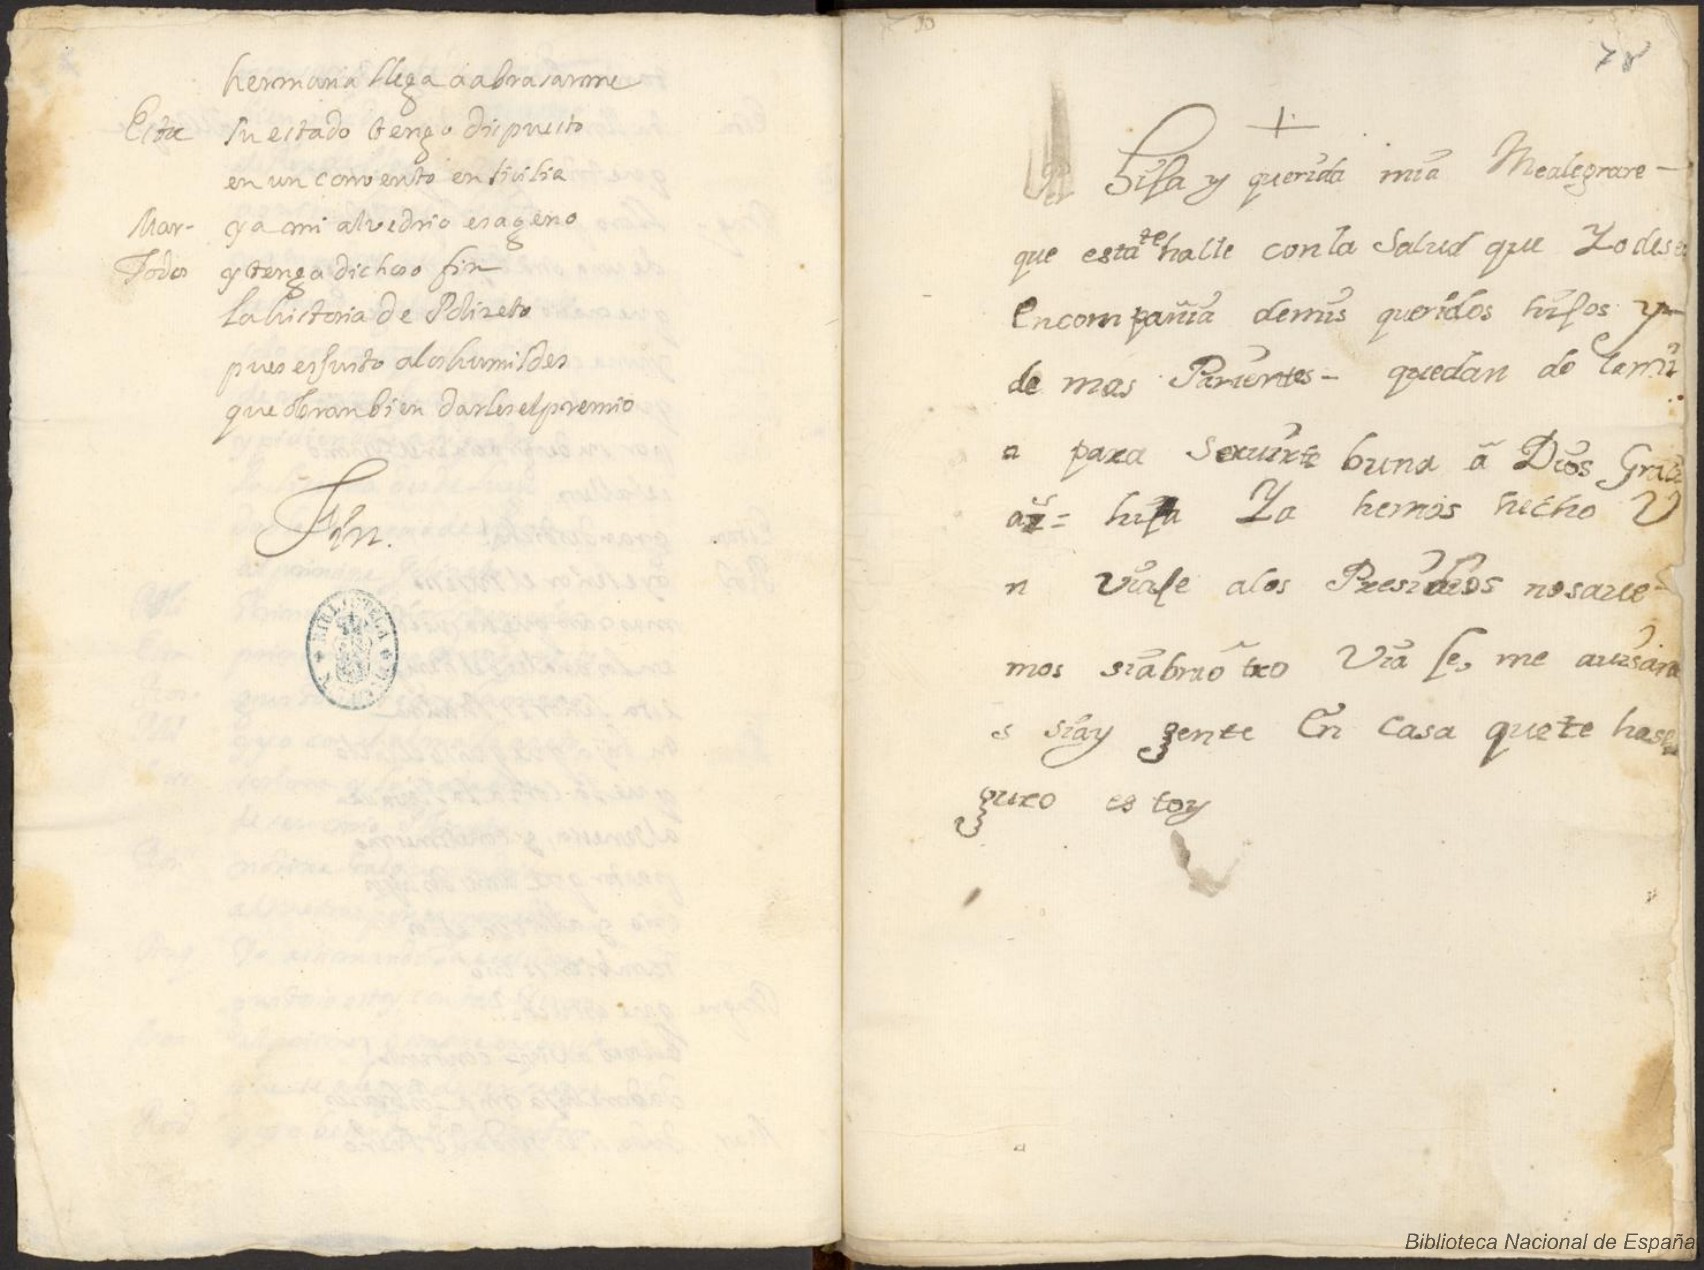 hermana llega a abrasarme
Este su estado tengo dispuesto
en un convento en sicilia
Mar- ya mi alvedrio es ageno
Todos y tenga dichoso fin
la historia de Polireto
pues es justo a los humildes
que obran bien darles el premio
Fin.
BIBLIOTECA
78
+
hija y querida mia Mealegrare-
que esta te halle con la Salud que Yo deseo
Encompañia demis queridos hijos y
de mas Parientes- quedan do la mi
a para Seruirte buna a Dios Graci
as= hija Ya hemos hecho V
n Viaje alos Presidios nosaue-
mos siabra otro Via je, me auisara
s siay gente En Casa que te hase
guro estoy
Biblioteca Nacional de España